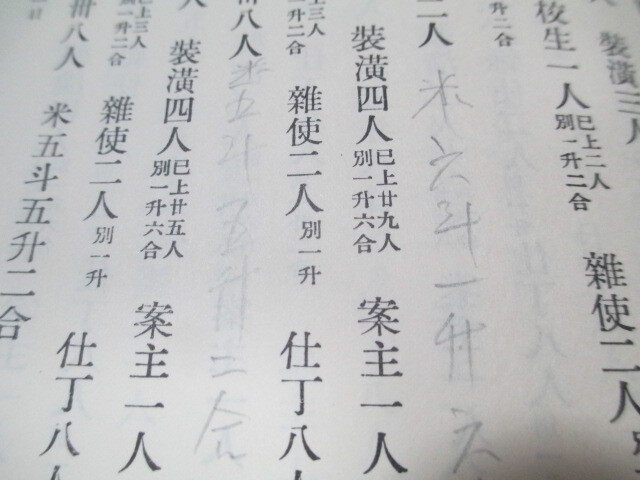 裝潢三人
校生一人 已上二人 別一升二合 雜使二人 別
升二合
二人 米六斗一升六
裝潢四人 已上廿九人 別一升六合 案主一人
上三人 一升二合 雜使二人 別一升 仕丁八人
八人 米五斗五升二合
裝潢四人 已上廿五人 別一升六合 案主一人
已上三人 一升二合 雜使二人 別一升 仕丁八人
卅八人 米五斗五升二合